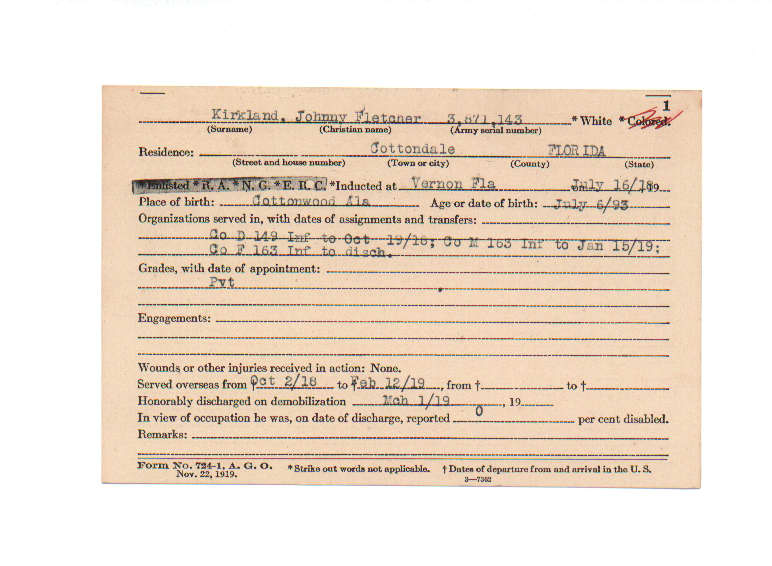 1
Kirkland, Johnny Fletcher 3,871,143 * White * Colored.
(Surname) (Christian name) (Army serial number)
Residence: Cottondale FLORIDA
(Street and house number) (Town or city) (County) (State)
*Enlisted *R. A. *N. G. *E. R. C. *Inducted at Vernon Fla July 16/18 19
Place of birth: Cottonwood Ala Age or date of birth: July 6/93
Organizations served in, with dates of assignments and transfers:
Co D 149 Inf to Oct 19/18; Co M 163 Inf to Jan 15/19;
Co F 163 Inf to disch.
Grades, with date of appointment:
Pvt
Engagements:
Wounds or other injuries received in action: None.
Served overseas from † Oct 2/18 to † Feb 12/19, from † to †
Honorably discharged on demobilization Mch 1/19, 19
In view of occupation he was, on date of discharge, reported 0 per cent disabled.
Remarks:
Form No. 724-1, A. G. O. * Strike out words not applicable. † Dates of departure from and arrival in the U. S.
Nov. 22, 1919. 3—7302